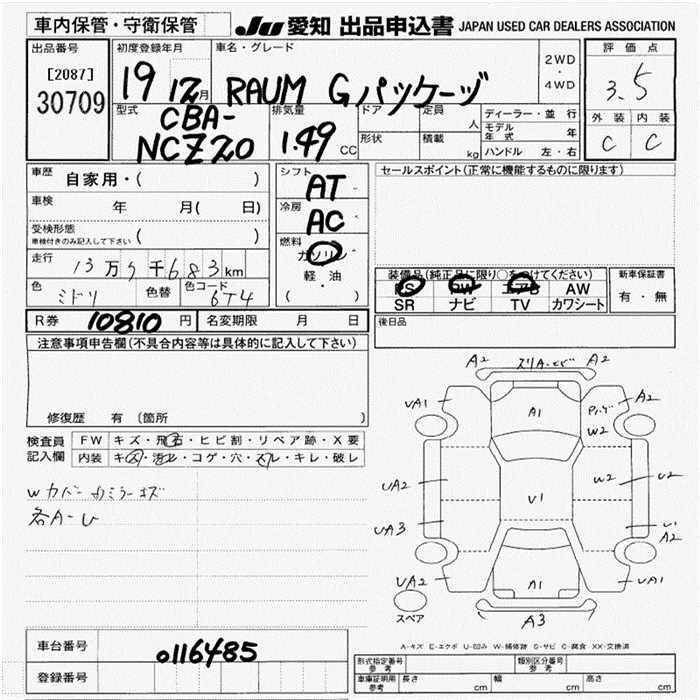 車内保管・守衛保管
JU 愛知 出品申込書 JAPAN USED CAR DEALERS ASSOCIATION
出品番号
[2087]
30709
初度登録年月
19 12月
車名・グレード
RAUM Gパッケージ
2WD
・
4WD
評価点
3.5
外装 内装
C C
型式
CBA-
NCZ20
排気量
1.49 CC
ドア 定員
人
形状 積載
kg
ディーラー・並行
モデル年式 年
ハンドル 左・右
車歴 自家用・( )
車検 年 月( 日)
受検形態
車検付きのみ記入して下さい ( )
走行 13万9千683km
色 ミドリ 色替 色コード 6T4
シフト
AT
冷房
AC
燃料
ガソリン
軽・油
( ・ )
セールスポイント(正常に機能するものに限ります)
装備品(純正品に限り○をつけてください)
PS PW エアB AW
SR ナビ TV カワシート
新車保証書
有・無
R券 10810 円 名変期限 月 日
後日品
注意事項申告欄(不具合内容等は具体的に記入して下さい)
修復歴 有 〔箇所 〕
検査員
記入欄
FW キズ・飛石・ヒビ割・リペア跡・X要
内装 キズ・汚レ・コゲ・穴・スレ・キレ・破レ
各A-U
A2 A2
UA1 A1 A2
W2
UA2 U1 W2 U2
UA3 U1
A2
UA2 A1 UA1
スペア A3
A-キズ E-エクボ U-凹み W-補修跡 S-サビ C-腐食 XX-交換済
車台番号 0116485
登録番号
形式指定番号
参考
類別区分番号
参考
車庫証明用
参考
長さ cm 幅 cm 高さ cm